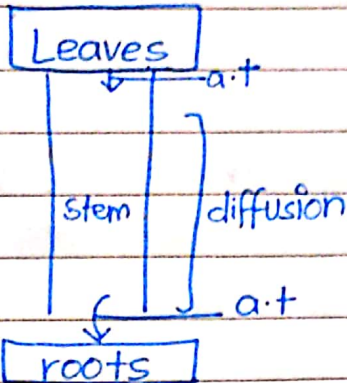 Leaves
a.t
stem
diffusion
a.t
roots